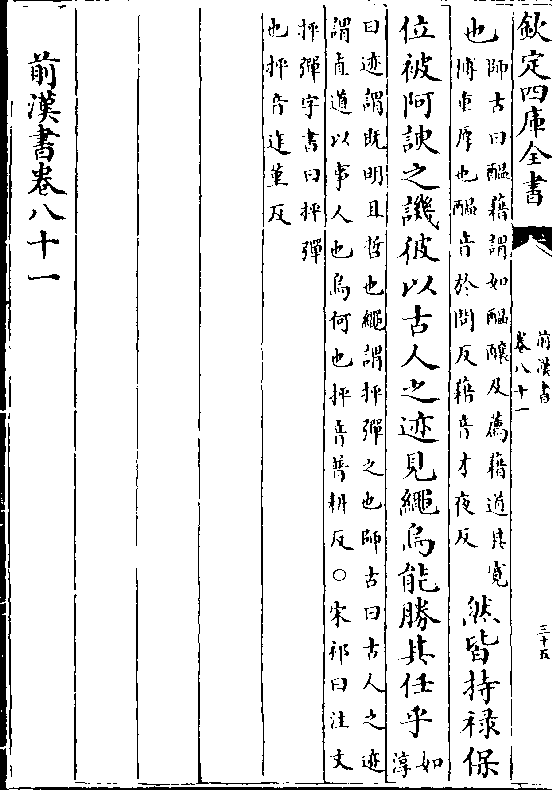 欽定四庫全書
前漢書
卷八十一
三十五
也
師古曰醞藉謂如醞釀及薦藉道其寛
博重厚也醞音於問反藉音才夜反
然皆持禄保
位被阿諛之譏彼以古人之迹見繩烏能勝其任乎
如
淳
曰迹謂既明且哲也繩謂抨彈之也師古曰古人之迹
謂直道以事人也烏何也抨音普耕反○宋祁曰注文
抨彈字書曰抨彈
也抨音莖反
前漢書卷八十一